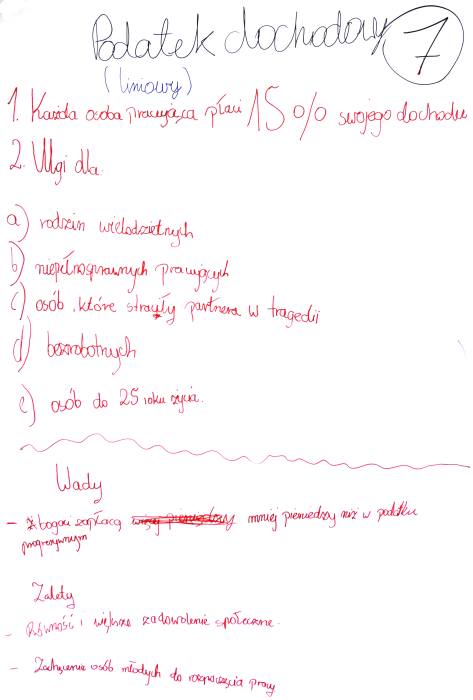 Podatek dochodowy 7
(liniowy)
1. Każda osoba pracująca płaci 15% swojego dochodu
2. Ulgi dla.
a) rodzin wielodzietnych
b) niepełnosprawnych pracujących
c) osób, które straciły partnera w tragedii
d) bezrobotnych
e) osób do 25 roku życia.
Wady
- bogaci zapłacą mniej pieniędzy niż w podatku
progresywnym
Zalety
- Równość i większe zadowolenie społeczne.
- Zachęcenie osób młodych do rozpoczęcia pracy